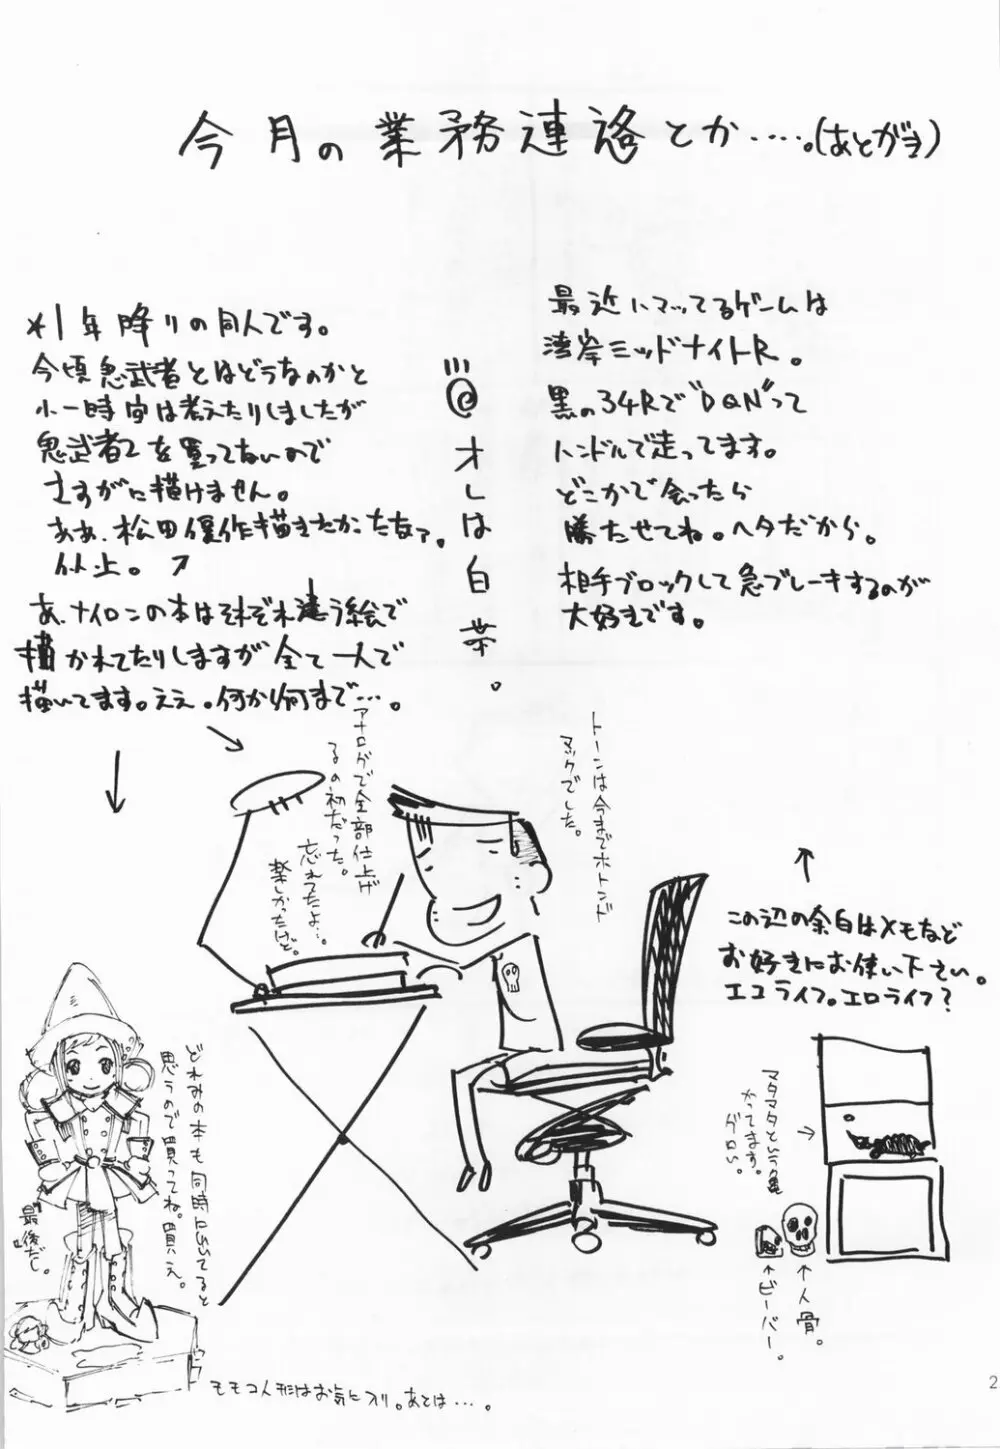 今月の業務連絡とか……。(あとがき)
*1年降りの同人です。
今頃鬼武者とはどうなのかと
小一時間は考えたりしましたが
鬼武者2を買ってないので
さすがに描けません。
ああ、松田優作描きたかったなァ。
以上。
あ、ナイロンの本はそれぞれ違う絵で
描かれてたりしますが全て一人で
描いてます。ええ。何から何まで…。
@オレは白
最近ハマッてるゲームは
湾岸ミッドナイトR。
黒の34Rで"DQN"って
ハンドルで走ってます。
どこかで会ったら
勝たせてね。ヘタだから。
相手ブロックして急ブレーキするのが
大好きです。
トーンは今までホトンド
マックでした。
アナログで全部仕上げ
るの初だった。
忘れてたよ…。
楽しかったけど。
この辺の余白はメモなど
お好きにお使い下さい。
エコライフ。エロライフ?
マタマタという亀
かってます。
グロい。
人骨。
ビーバー。
どれみの本も同時に出てると
思うので買ってね。買え。
最後だし。
モモコ人形はお気に入り。あとは…。
2